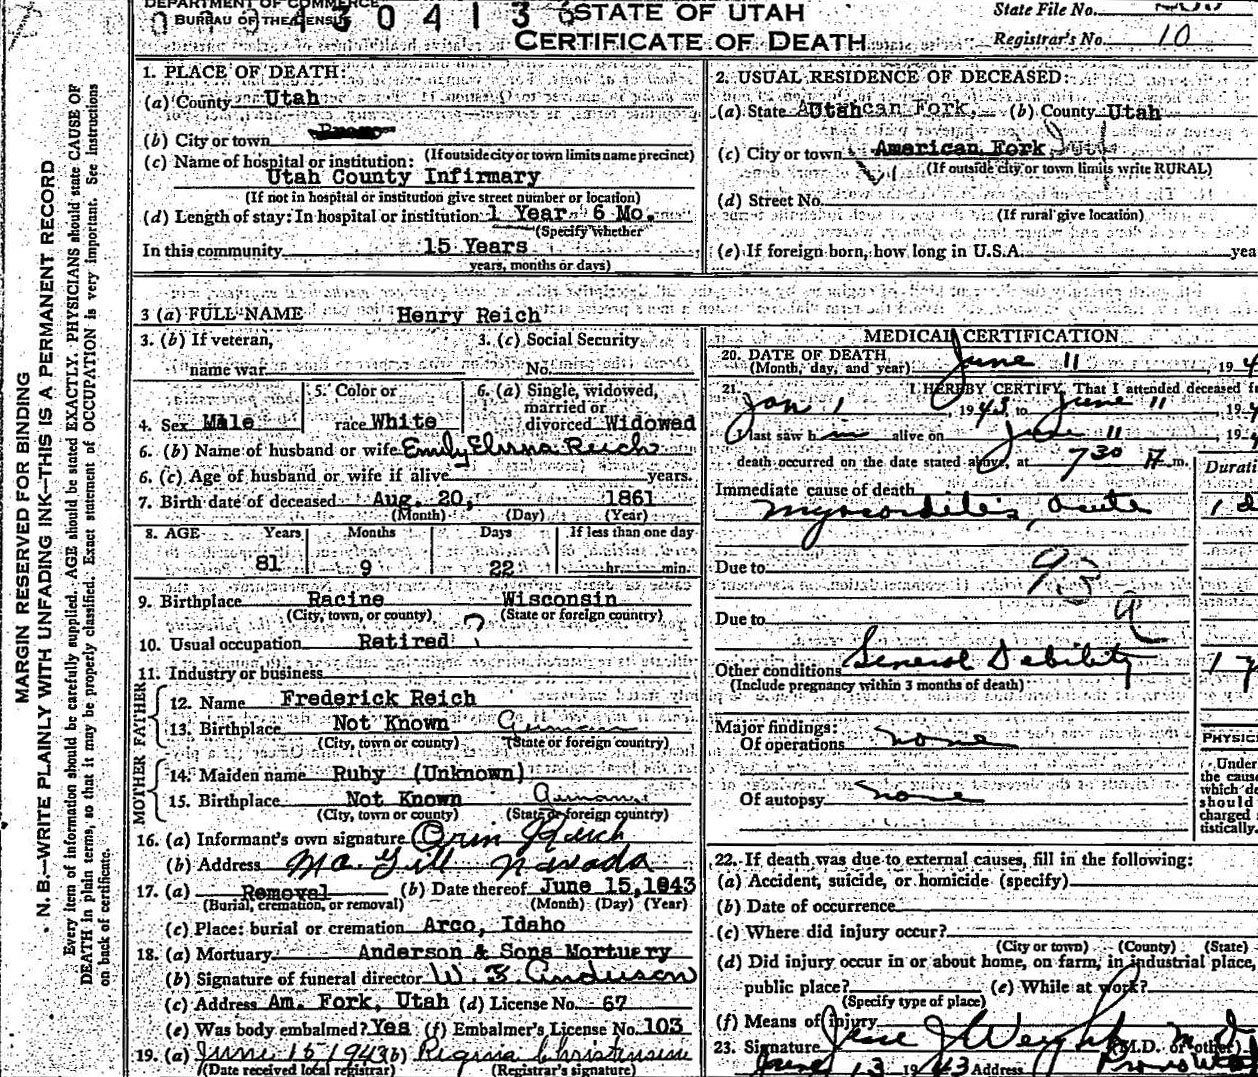 DEPARTMENT OF COMMERCE
BUREAU OF THE CENSUS
STATE OF UTAH
CERTIFICATE OF DEATH
State File No.
Registrar's No. 10
MARGIN RESERVED FOR BINDING
N. B.—WRITE PLAINLY WITH UNFADING INK—THIS IS A PERMANENT RECORD
Every item of information should be carefully supplied. AGE should be stated EXACTLY. PHYSICIANS should state CAUSE OF
DEATH in plain terms, so that it may be properly classified. Exact statement of OCCUPATION is very important. See Instructions
on back of certificate.
1. PLACE OF DEATH:
(a) County Utah
(b) City or town
(If outside city or town limits name precinct)
(c) Name of hospital or institution:
Utah County Infirmary
(If not in hospital or institution give street number or location)
(d) Length of stay: In hospital or institution 1 Year 6 Mo.
(Specify whether
In this community 15 Years
years, months or days)
2. USUAL RESIDENCE OF DECEASED:
(a) State Utah can Fork, (b) County Utah
(c) City or town American Fork
(If outside city or town limits write RURAL)
(d) Street No.
(If rural give location)
(e) If foreign born, how long in U.S.A. yea
3 (a) FULL NAME Henry Reich
3. (b) If veteran,
name war
3. (c) Social Security
No.
4. Sex Male
5. Color or
race White
6. (a) Single, widowed,
married or
divorced Widowed
6. (b) Name of husband or wife Emily Reich
6. (c) Age of husband or wife if alive years.
7. Birth date of deceased Aug. 20, 1861
(Month) (Day) (Year)
8. AGE Years Months Days If less than one day
81 9 22 hr. min.
9. Birthplace Racine Wisconsin
(City, town, or county) (State or foreign country)
10. Usual occupation Retired ?
11. Industry or business
FATHER
12. Name Frederick Reich
13. Birthplace Not Known
(City, town or county) (State or foreign country)
MOTHER
14. Maiden name Ruby (Unknown)
15. Birthplace Not Known
(City, town or county) (State or foreign country)
16. (a) Informant's own signature Orin Reich
(b) Address Mc Gill Nevada
17. (a) Removal (b) Date thereof June 15, 1943
(Burial, cremation, or removal) (Month) (Day) (Year)
(c) Place: burial or cremation Arco, Idaho
18. (a) Mortuary Anderson & Sons Mortuary
(b) Signature of funeral director W. E. Anderson
(c) Address Am. Fork, Utah (d) License No. 67
(e) Was body embalmed? Yes (f) Embalmer's License No. 103
19. (a) June 15 1943 (b) Regina Christensen
(Date received local registrar) (Registrar's signature)
MEDICAL CERTIFICATION
20. DATE OF DEATH June 11, 194
(Month, day, and year)
21. I HEREBY CERTIFY, That I attended deceased fr
Jan 1, 1943 to June 11, 194
I last saw him alive on June 11, 194
death occurred on the date stated above, at 7 30 A m.
Durati
Immediate cause of death
Myocarditis, acute 1 d
Due to
93
a
Due to
Other conditions General Debility 1 y
(Include pregnancy within 3 months of death)
Major findings:
Of operations none
Of autopsy none
PHYSIC
Under
the cause
which de
should
charged
tistically.
22. If death was due to external causes, fill in the following:
(a) Accident, suicide, or homicide (specify)
(b) Date of occurrence
(c) Where did injury occur?
(City or town) (County) (State)
(d) Did injury occur in or about home, on farm, in industrial place,
public place? (e) While at work?
(Specify type of place)
(f) Means of injury
23. Signature Jesse J Weight M D (M.D. or other)
June 13 1943 Address Provo